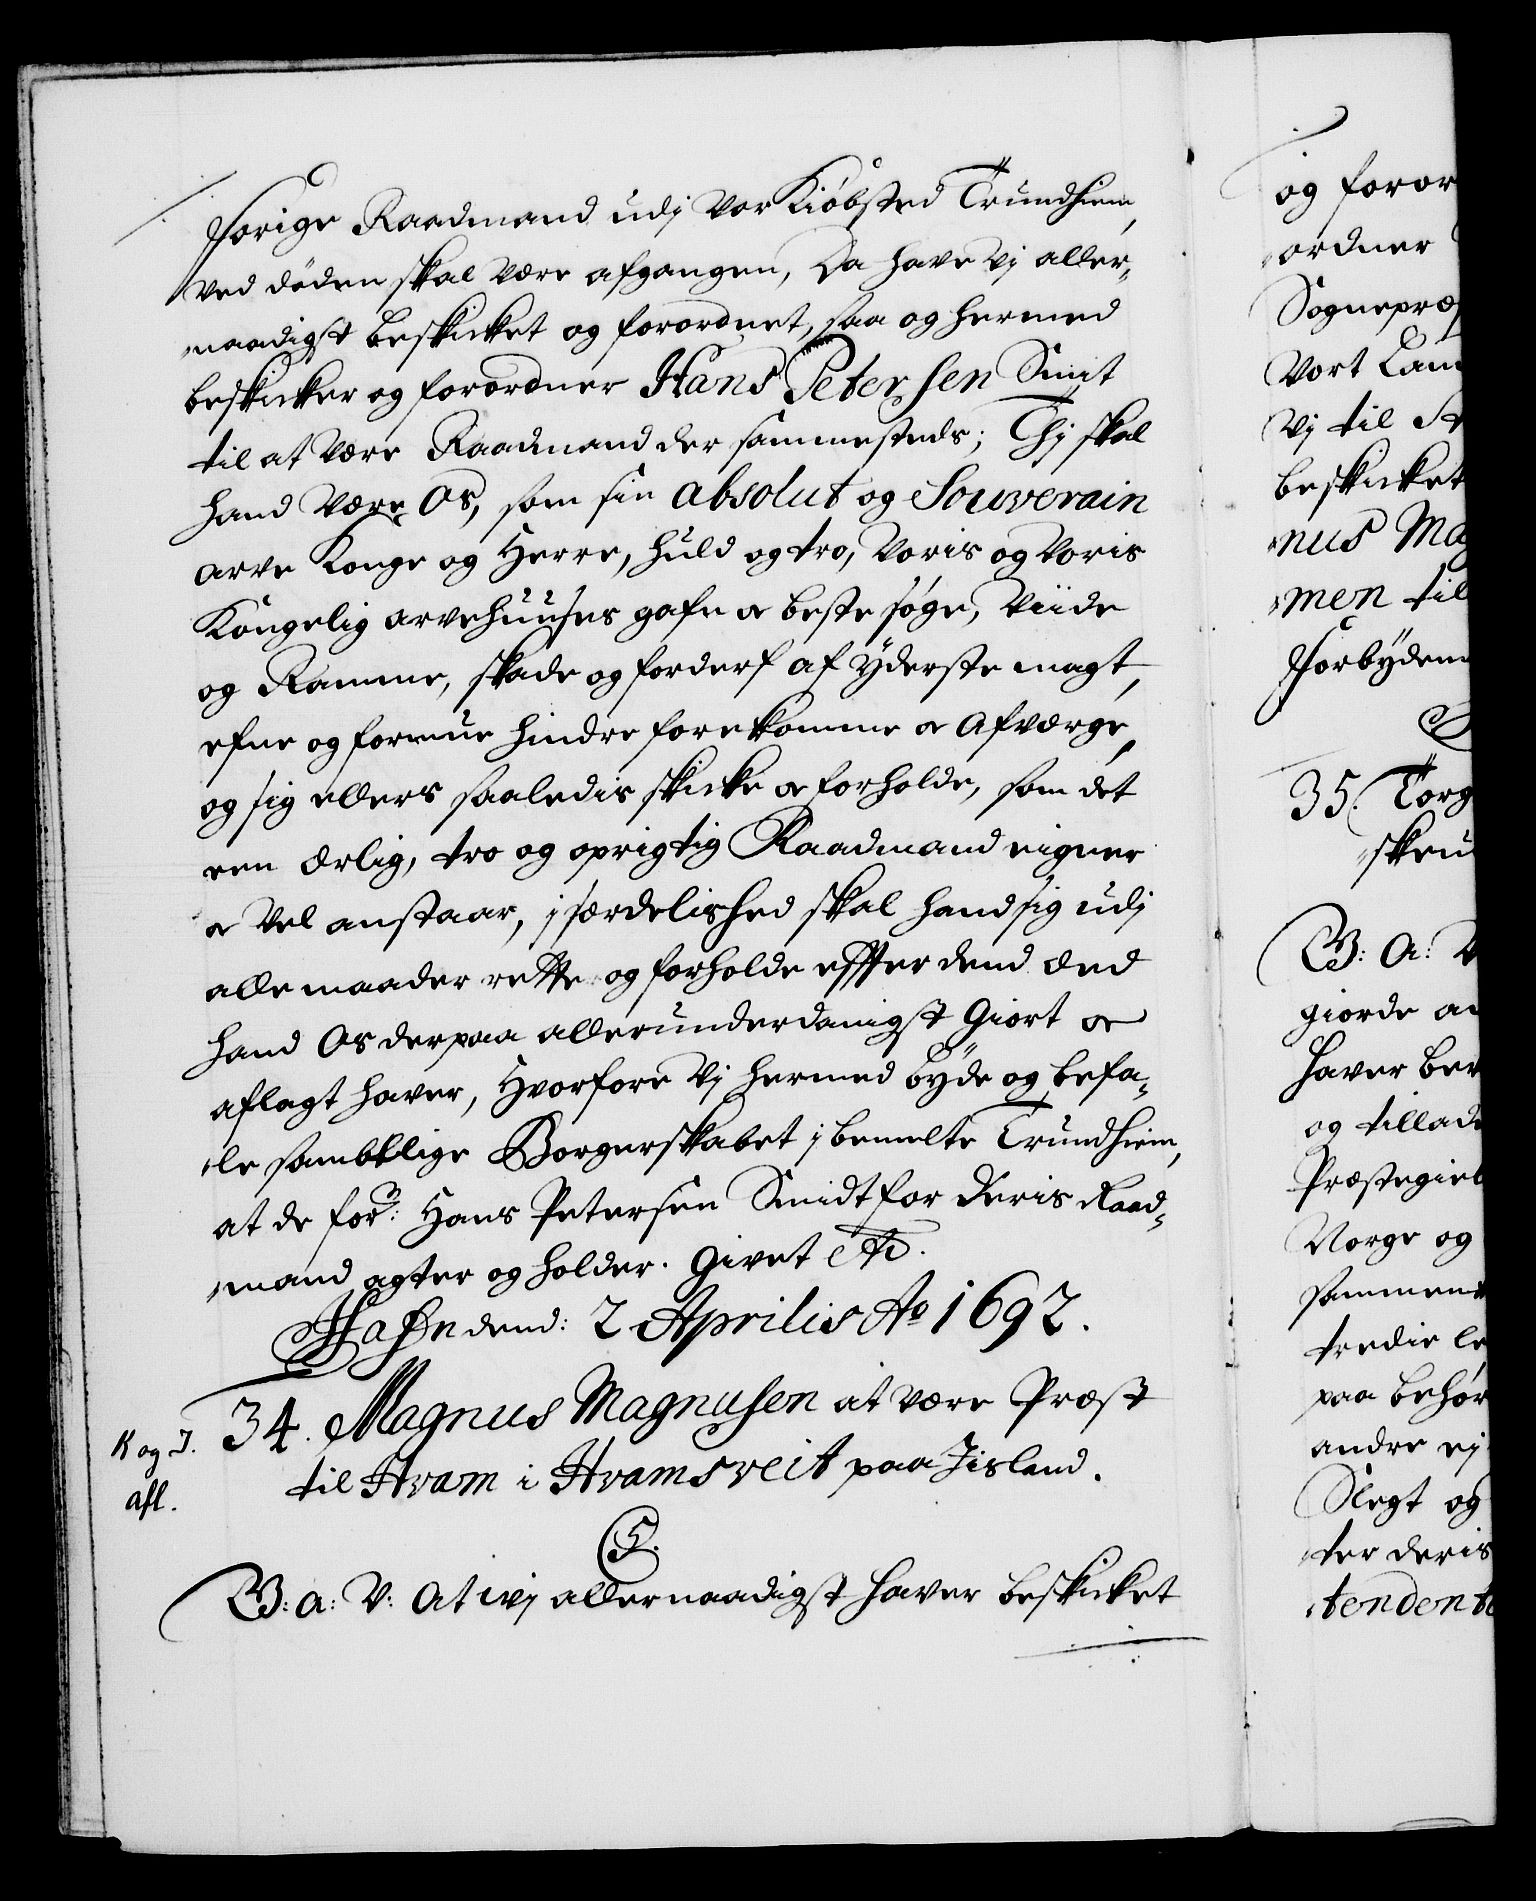 forige Raadmand udj vor Kiöbsted Trundhiem,
ved döden skal være afgangen, Da have Vj aller-
naadigst beskicket og forordnet, saa og hermed
beskicker og forordner Hans Petersen Smit
til at være Raadmand der sammesteds; Thj skal
hand være Os, som sin absolut og Souverain
arve Konge og Herre, huld og tro, Voris og Voris
Kongelig arvehuuses gafn oc beste söge, Viide
og Ramme, skade og forderf af yderste magt,
efne og formue hindre forekomme oc Afværge,
og sig ellers saaledis skicke oc forholde, som det
een ærlig, tro og oprigtig Raadmand eigner
oc Vel anstaar, j særdelished skal hand sig udj
alle maader rette og forholde effter dend Æed
hand Os derpaa allerunderdanigst Giort oc
aflagt haver, Hvorfore Vj hermed byde og befa-
le sambtlige Borgerskabet j bemelte Trundhiem,
at de for: Hans Petersen Smidt for deris Raad-
mand agter og holder. Givet etc.
Hafn dend: 2 Aprilis Ao 1692.
34. Magnus Magnusen at være Præst
K og I. afl.
til Hvam i Hvamsveit paa Jisland.
C5.
G: A: V: At wj allernaadigst haver beskicket
og foror
ordner
Sognepræ
Vort Lan
Vj til
beskicket
nus Mag
men til
Forbydem
35. Torg
skeu
G: A: V
giorde an
haver ber
og tillad
Præstegiel
Norge og
sammen
tredie le
paa behör
andre ej
Slegt og
ter deris
tendent